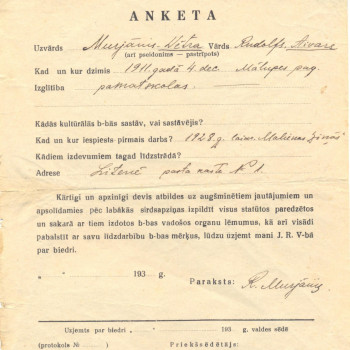 ANKETA
Uzvārds Murjānis-Vētra Vārds Rudolfs, Aivars
(arī pseidonīms – pastrīpots)
Kad un kur dzimis 1911. gadā 4. dec. Mālupes pag.
Izglītība pamatskolas
Kādās kultūrālās b-bās sastāv, vai sastāvējis?
Kad un kur iespiests pirmais darbs? 1928. g. laikr. Malienas Ziņās
Kādiem izdevumiem tagad līdzstrādā?
Adrese Litenē pasta nodaļā № 1.
Kārtīgi un apzinīgi devis atbildes uz augšminētiem jautājumiem un
apsolīdamies pēc labākās sirdsapziņas izpildīt visus statūtos paredzētos
un sakarā ar tiem izdotos b-bas vadošos organu lēmumus, kā arī visādi
pabalstīt ar savu līdzdarbību b-bas mērķus, lūdzu uzņemt mani J. R. V-bā
par biedri.
" " 193 g.
Paraksts: R. Murjānis
Uzņemts par biedri " 193 g. valdes sēdē
(protokols № ) Priekšsēdētājs: